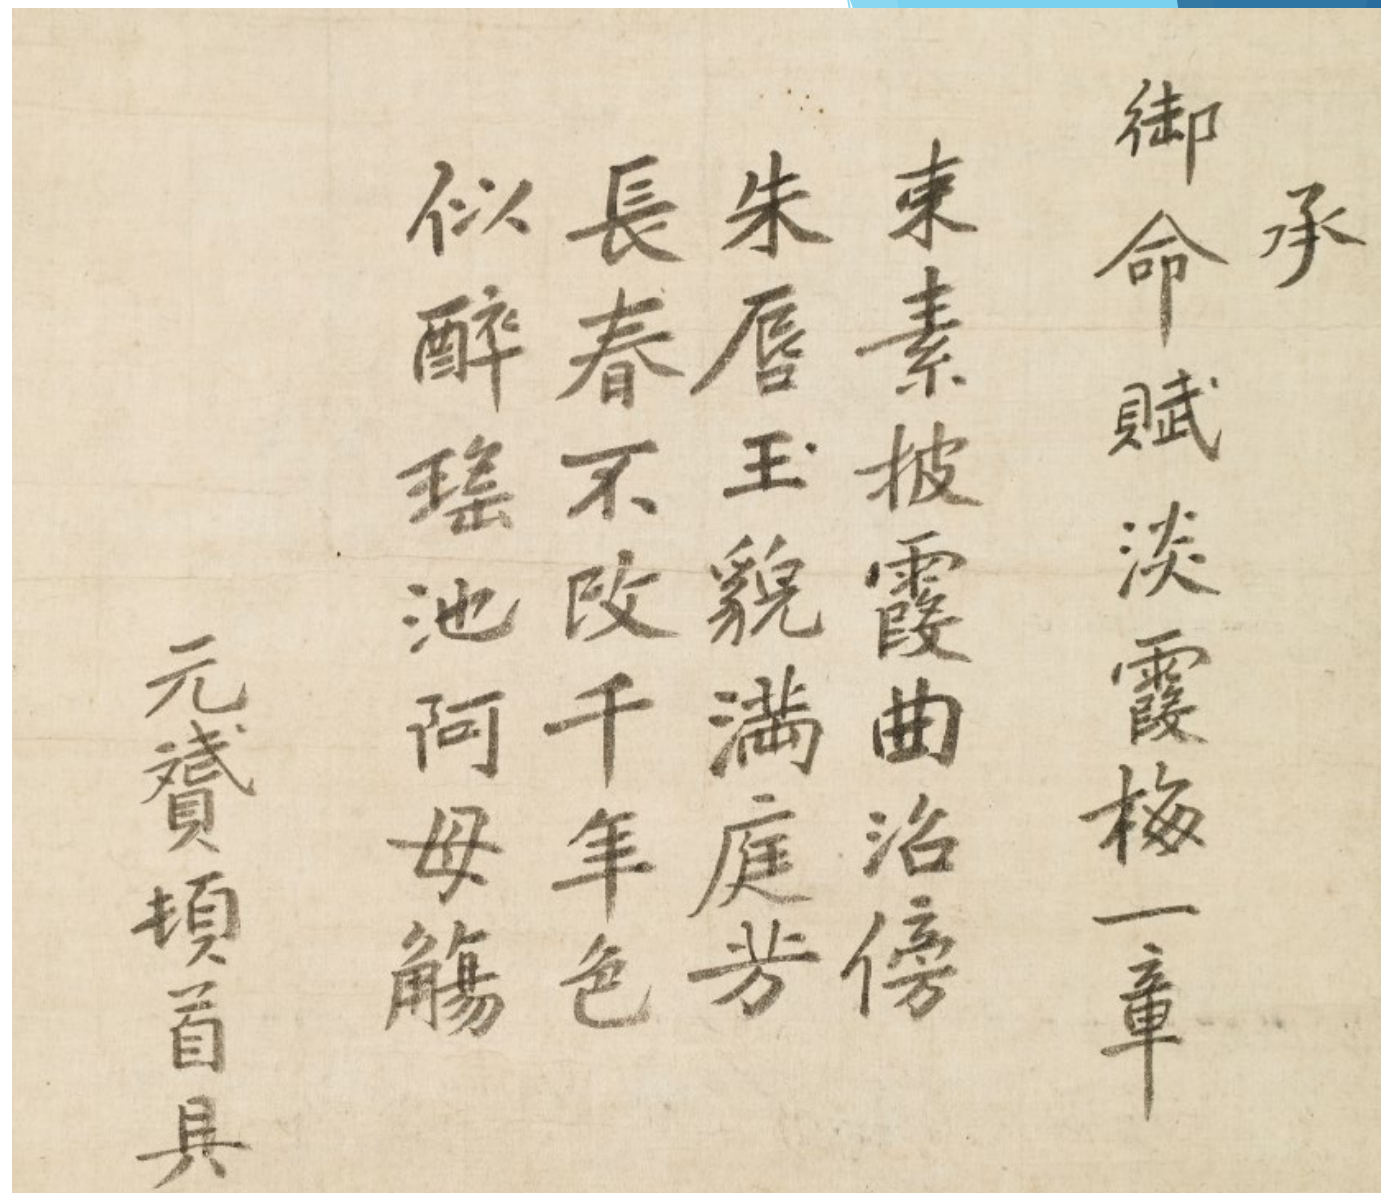 承
御命賦淡霞梅一章
束素披霞曲沼傍
朱唇玉貌満庭芳
長春不改千年色
似酔瑶池阿母觴
元贇頓首具